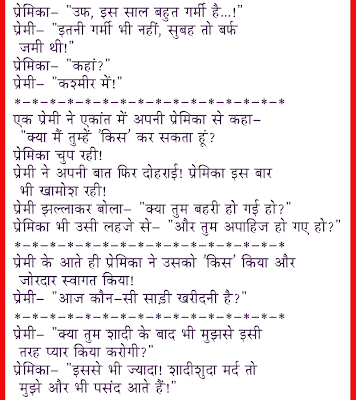 प्रेमिका– "उफ, इस साल बहुत गर्मी है...!"
प्रेमी– "इतनी गर्मी भी नहीं, सुबह तो बर्फ
जमी थी!"
प्रेमिका– "कहां?"
प्रेमी– "कश्मीर में!"
*–*–*–*–*–*–*–*–*–*–*–*–*–*
एक प्रेमी ने एकांत में अपनी प्रेमिका से कहा–
"क्या मैं तुम्हें 'किस' कर सकता हूं?
प्रेमिका चुप रही!
प्रेमी ने अपनी बात फिर दोहराई! प्रेमिका इस बार
भी खामोश रही!
प्रेमी झल्लाकर बोला– "क्या तुम बहरी हो गई हो?"
प्रेमिका भी उसी लहजे से– "और तुम अपाहिज हो गए हो?"
*–*–*–*–*–*–*–*–*–*–*–*–*–*
प्रेमी के आते ही प्रेमिका ने उसको 'किस' किया और
जोरदार स्वागत किया!
प्रेमी– "आज कौन-सी साड़ी खरीदनी है?"
*–*–*–*–*–*–*–*–*–*–*–*–*–*
प्रेमी– "क्या तुम शादी के बाद भी मुझसे इसी
तरह प्यार किया करोगी?"
प्रेमिका– "इससे भी ज्यादा! शादीशुदा मर्द तो
मुझे और भी पसंद आते हैं!"